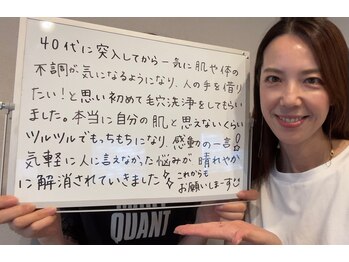 40代に突入してから一気に肌や体の
不調が気になるようになり、人の手を借り
たい!と思い初めて毛穴洗浄をしてもらい
ました。本当に自分の肌と思えないくらい
ツルツルでもっちもちになり、感動の一言!!
気軽に人に言えなかった悩みが晴れやか
に解消されていきました
これからも
お願いしまーす
QUANT